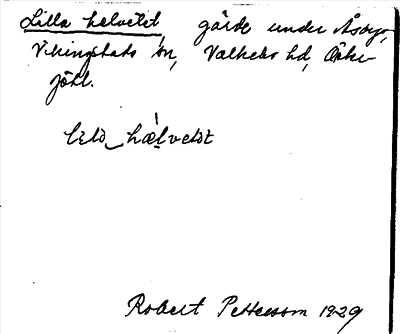 Lilla helvetet, gärde under Åsby,
Vikingstads sn, Valkebo hd, Öster-
götl.
lilɑ hælvetət
Robert Pettersson 1929